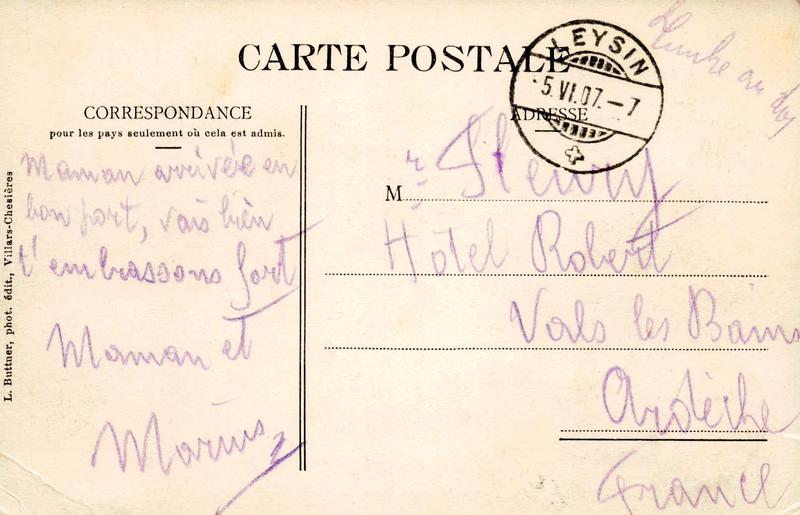 CARTE POSTALE
LEYSIN
-5.VI.07.-7
CORRESPONDANCE
pour les pays seulement où cela est admis.
ADRESSE
Maman arrivée en
bon port, vais bien
t'embrassons fort
Maman et
Marius
M r Fleury
Hôtel Robert
Vals les Bains
Ardèche
France
L. Buttner, phot. édit., Villars-Chesières